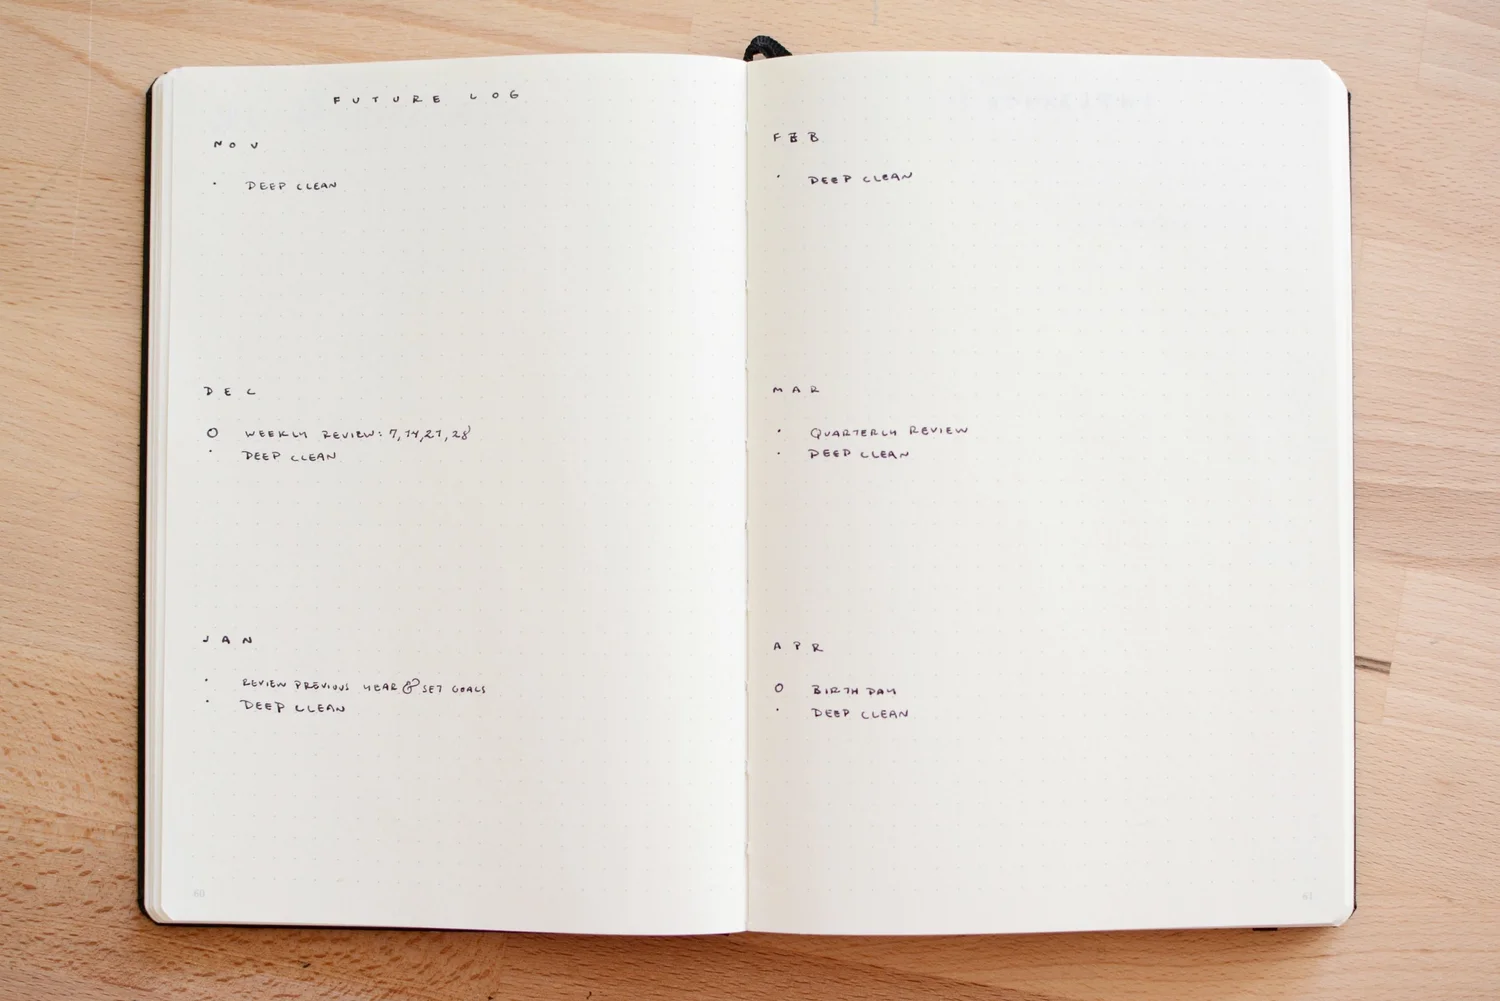 FUTURE LOG
NOV
· DEEP CLEAN
DEC
O WEEKLY REVIEW: 7, 14, 21, 28
· DEEP CLEAN
JAN
· REVIEW PREVIOUS YEAR & SET GOALS
· DEEP CLEAN
60
FEB
· DEEP CLEAN
MAR
· QUARTERLY REVIEW
· DEEP CLEAN
APR
O BIRTHDAY
· DEEP CLEAN
61